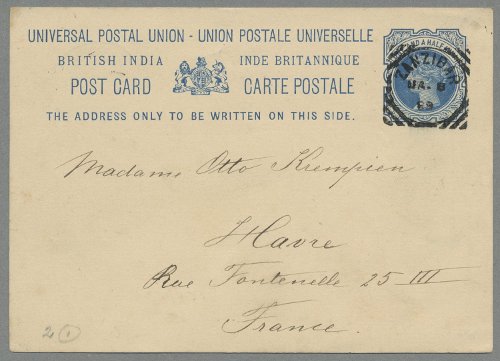 UNIVERSAL POSTAL UNION - UNION POSTALE UNIVERSELLE
BRITISH INDIA INDE BRITANNIQUE
POST CARD CARTE POSTALE
THE ADDRESS ONLY TO BE WRITTEN ON THIS SIDE.
AND A HALF
ZANZIBAR
JA. 8
89
Madame Otto Krempien
Havre
Rue Fontenelle 25 III
France.
2 1